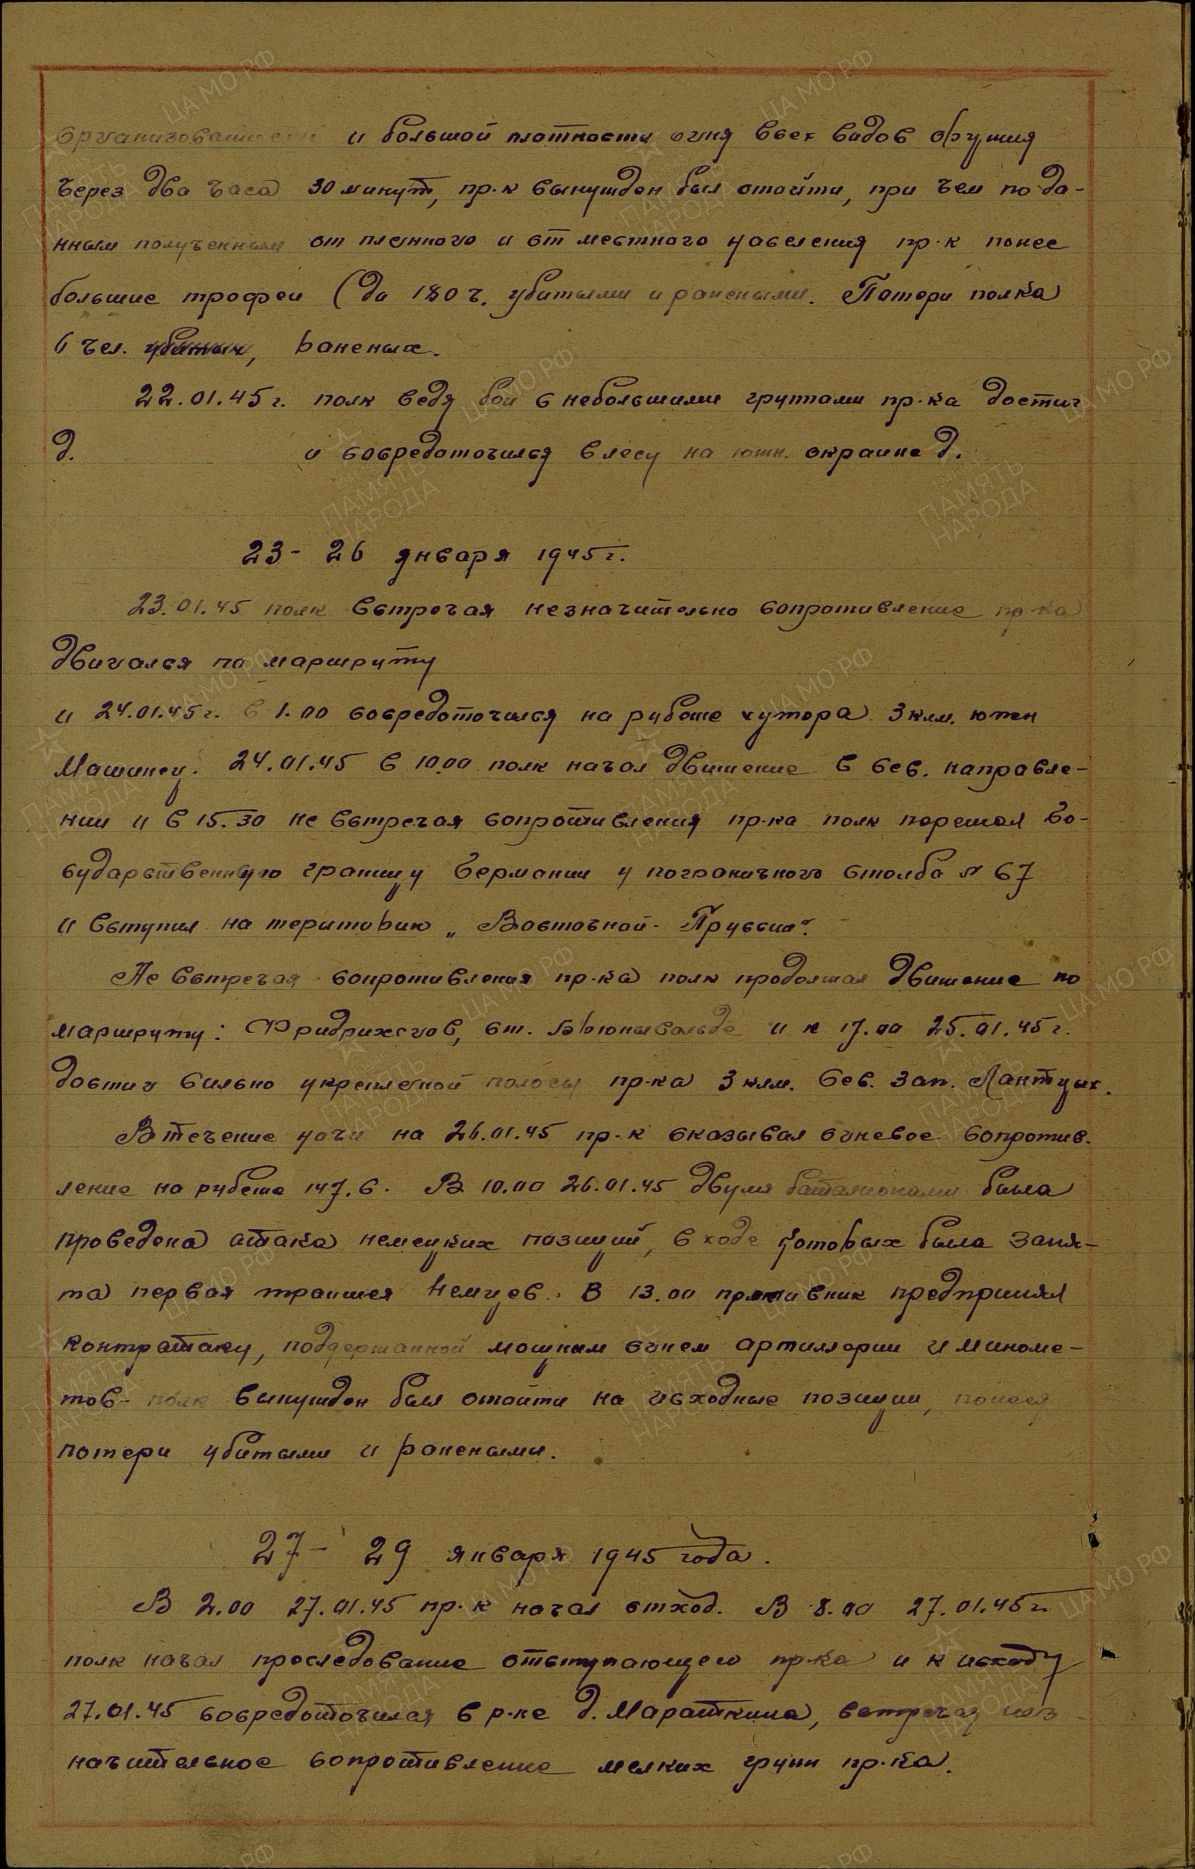 организованности и большой плотности огня всех видов оружия
через два часа 30 минут, пр-к вынужден был отойти, при чем по да-
нным полученным от пленного и от местного населения пр-к понес
большие трофеи (до 180 ч. убитыми и ранеными. Потери полка
6 чел. убитых, раненых.
22.01.45 г. полк ведя бои с небольшими группами пр-ка достиг
д. и сосредоточился в лесу на южн. окраине д.
23 - 26 января 1945 г.
23.01.45 полк встречая незначительно сопротивление пр-ка
двигался по маршруту
и 24.01.45 г. в 1.00 сосредоточился на рубеже хутора 3 клм. южн
Машинец. 24.01.45 в 10.00 полк начал движение в сев. направле-
нии и в 15.30 не встречая сопротивления пр-ка полк перешел Го-
сударственную границу Германии у пограничного столба № 67
и вступил на територию „Восточной - Пруссии".
Не встречая сопротивления пр-ка полк продолжал движение по
маршруту: Фридрихсгов, ст. Грюнывальде и к 17.00 25.01.45 г.
достиг сильно укрепленой полосы пр-ка 3 клм. сев. зап. Лантцых.
В течение ночи на 26.01.45 пр-к оказывал огневое сопротив-
ление на рубеже 147.6. В 10.00 26.01.45 двумя баталионами была
проведена атака немецких позиций, в ходе которых была заня-
та первая траншея немцев. В 13.00 противник предпринял
контратаку, поддержанной мощным огнем артиллерии и миноме-
тов - полк вынужден был отойти на исходные позиции, понеся
потери убитыми и ранеными.
27 - 29 января 1945 года.
В 2.00 27.01.45 пр-к начал отход. В 8.00 27.01.45 г.
полк начал преследование отступающего пр-ка и к исходу
27.01.45 сосредоточился в р-не д. Мараткина, встречая нез-
начительное сопротивление мелких групп пр-ка.